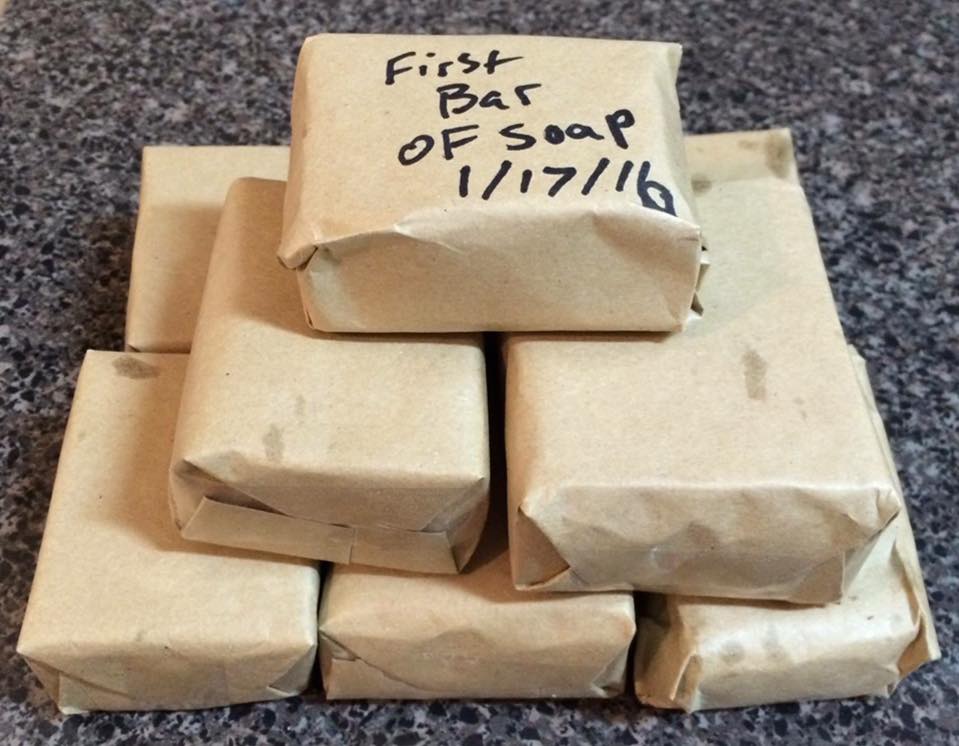 First
Bar
OF Soap
1/17/16